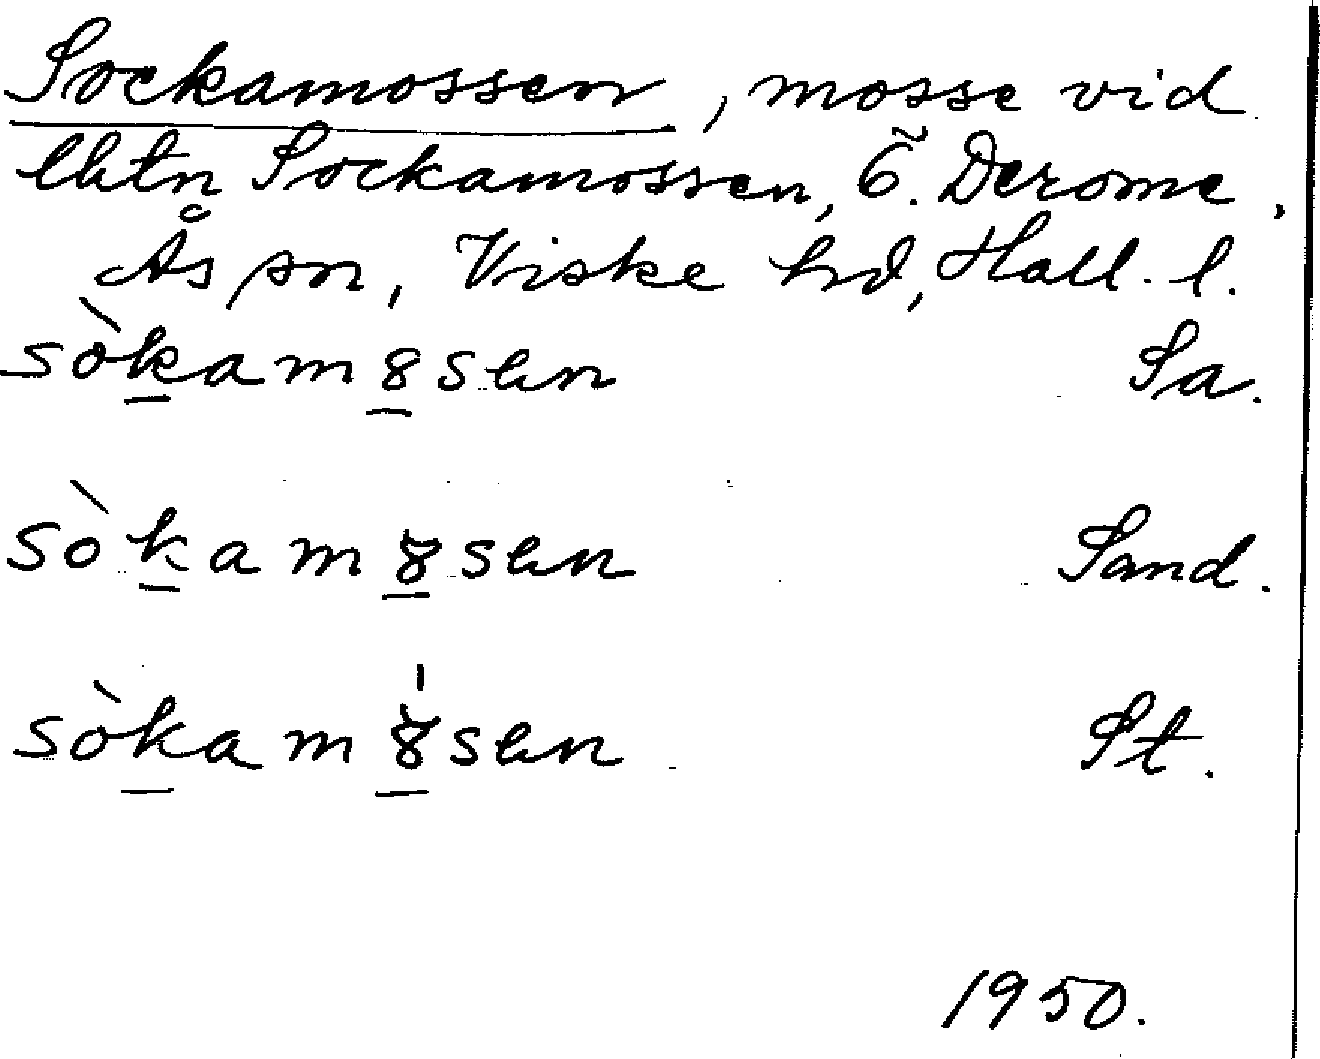 Sockamossen, mosse vid
lhtn Sockamossen, Ö. Derome,
Ås sn, Viske hd, Hall. l.
sòk̲am8̲sen Sa.
sòk̲am8̲sen Sand.
sòk̲am8̲́sen St.
1950.